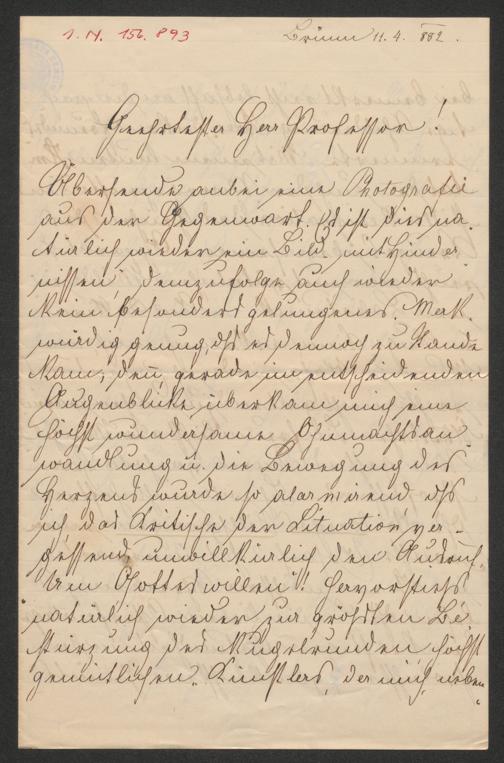 I. N. 156.893
Brünn 11. 4. 882.
Geehrtester Herr Professor!
Übersende anbei eine Photografie
aus der Gegenwart. Es ist dies na-
türlich wieder ein Bild „mit Hinder
nissen“ demzufolge auch wieder
kein besonders gelungenes. Merk-
würdig genug, dß es dennoch zu Stande
kam, den̅ gerade im entscheidenden
Augenblicke überkam mich eine
höchst wundersame Ohnmachtsan
wandlung u. die Bewegung des
Herzens wurde so alarmirend dß
ich das Kritische der Situation ver-
gessend unwillkürlich den Ausruf
„Um Gotteswillen“! hervorstieß
natürlich wieder zur größten Be-
stürzung des kugelrunden höchst
gemütlichen Künstlers, der mich neben